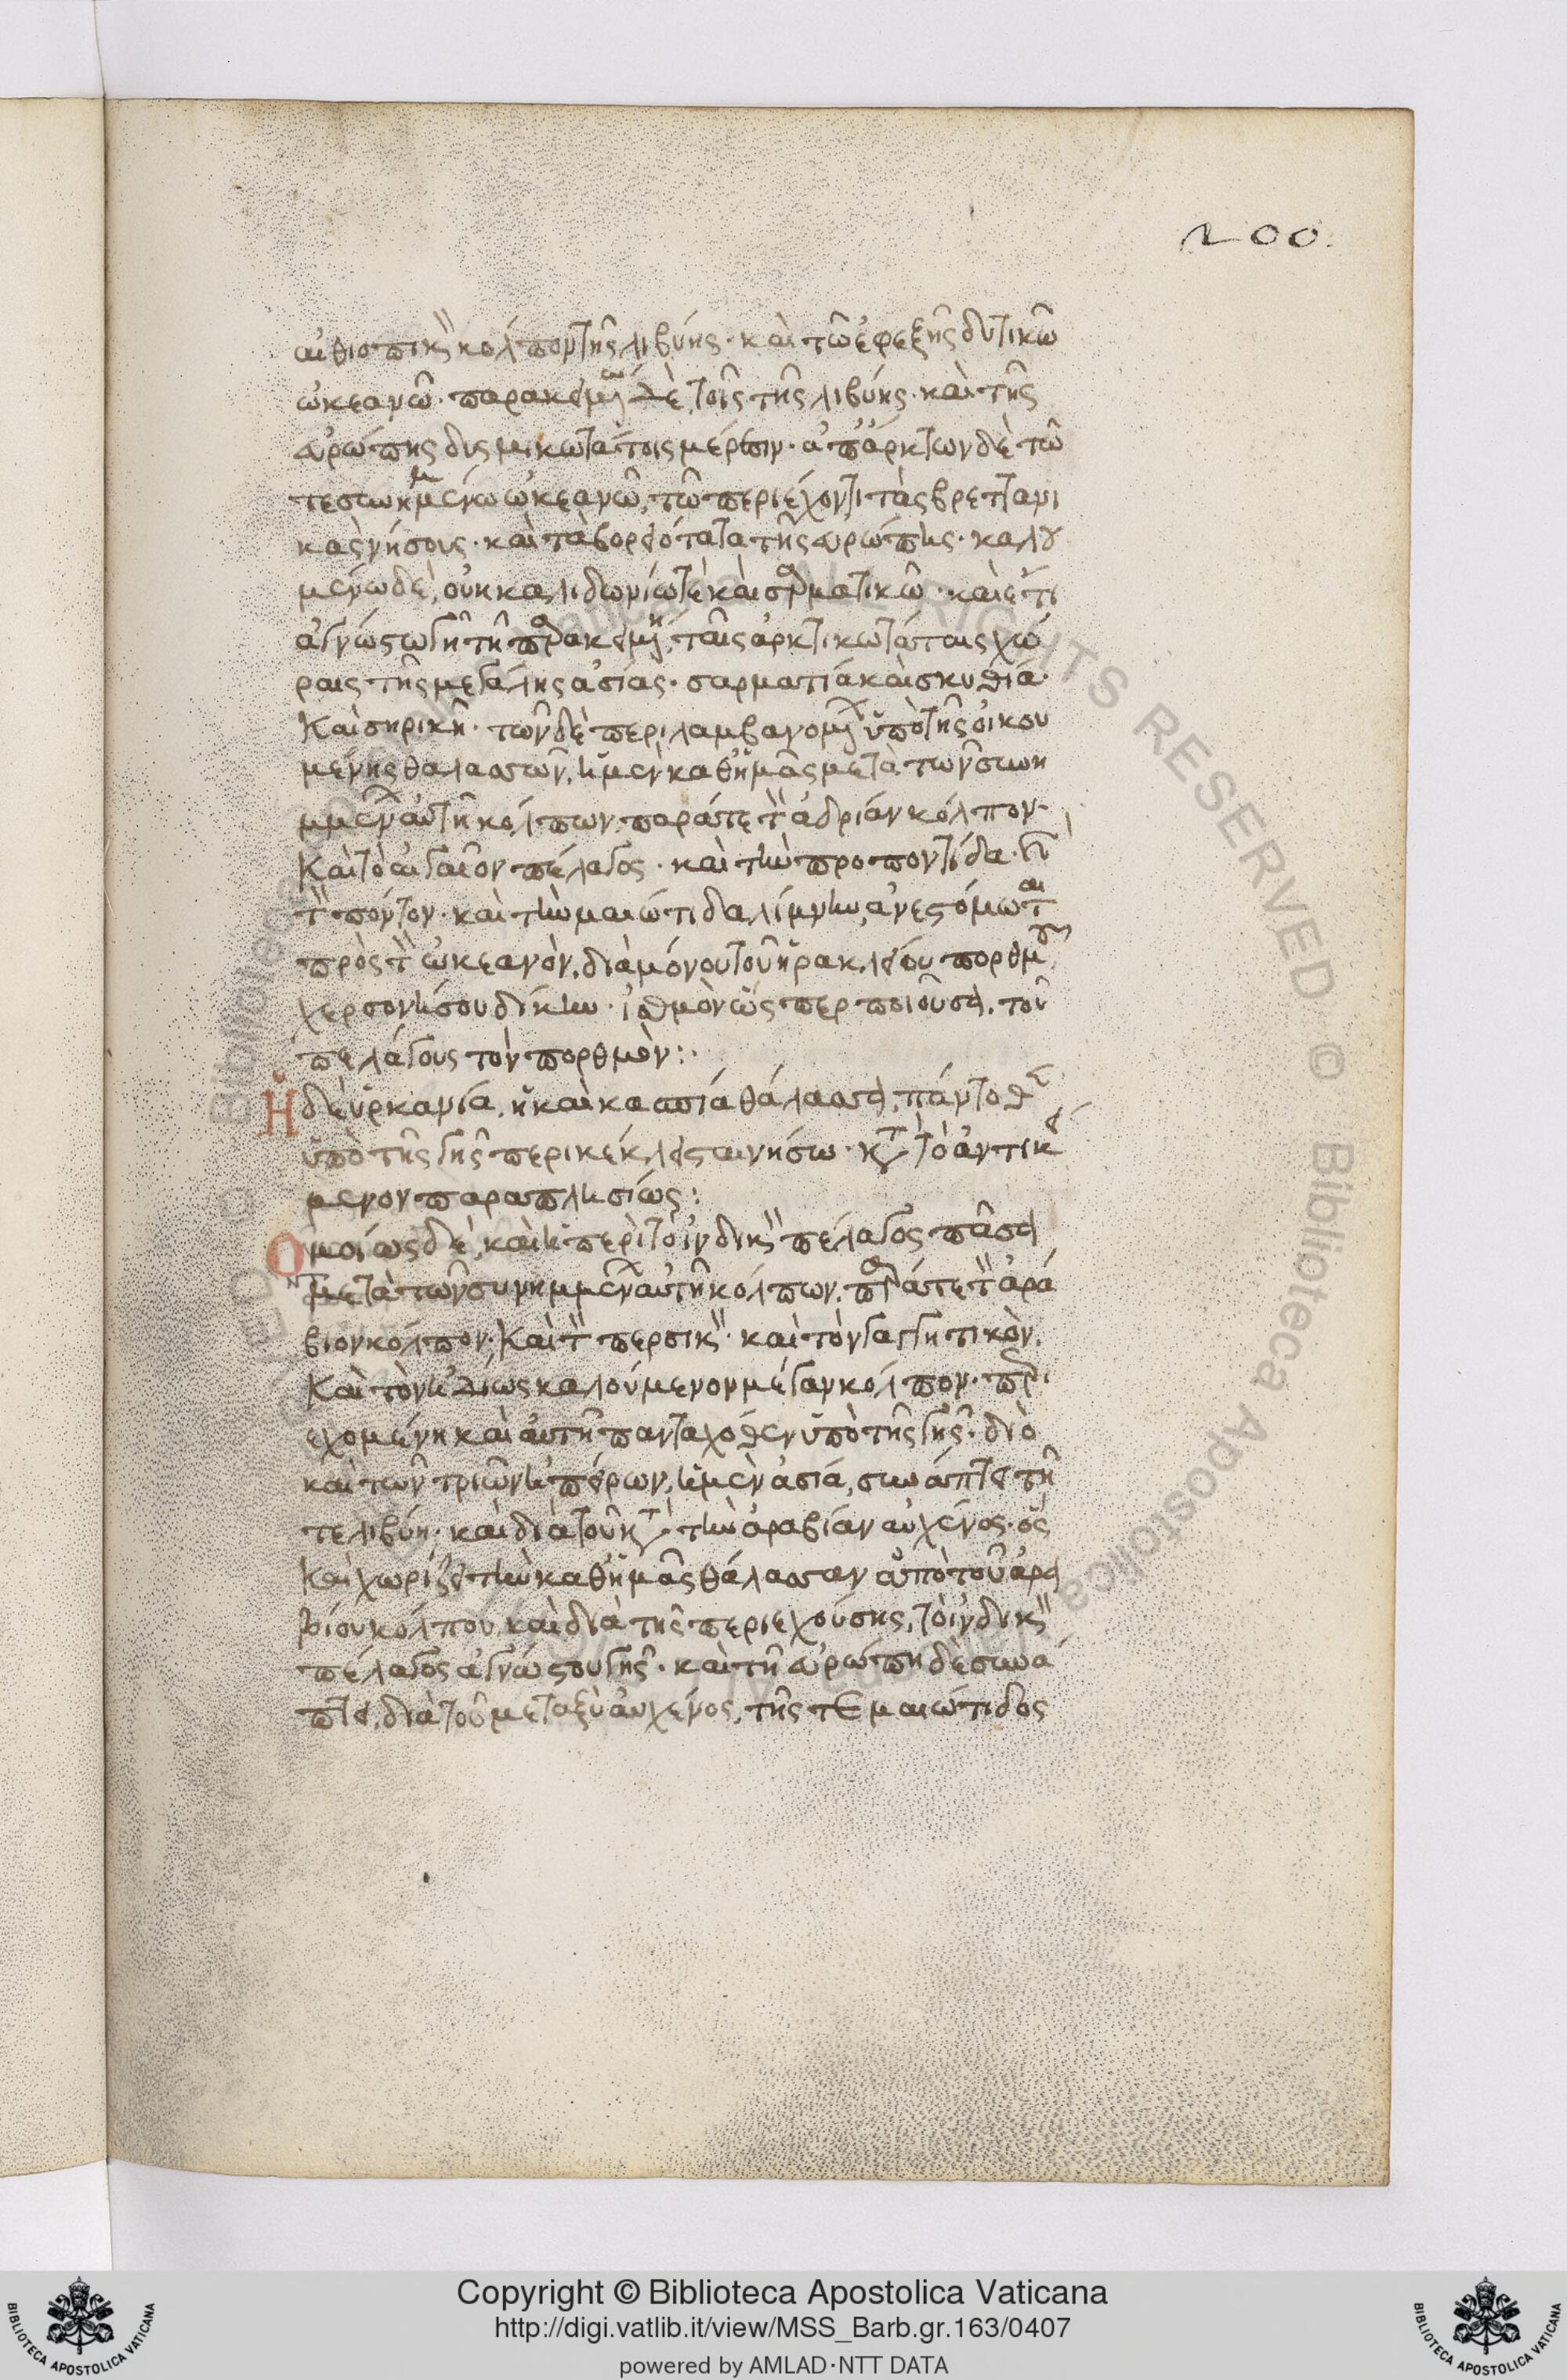 200.
αἰθιοπικὸν κόλπον τῆς λιβύης· καὶ τῶ ἐφεξῆς δυτικῶ
ὠκεανῶ· παρακειμένω δὲ, τοῖς τῆς λιβύης· καὶ τῆς
εὐρώπης δυσμικωτάτοις μέρεσιν· ἀπ' ἄρκτων δὲ τῶ
τε συνημμένω ὠκεανῶ, τῶ περιέχοντι τὰς βρεττανι
κὰς νήσους· καὶ τὰ βορειότατα τῆς εὐρώπης· καλου
μένω δὲ, οὐηκαλιδωνίω τὲ καὶ σαρματικῶ· καὶ ἔτι
ἀγνώστω γῆ τῆ παρακειμένη, ταῖς ἀρκτικωτάταις χώ
ραις τῆς μεγάλης ἀσίας· σαρματία καὶ σκυθία·
Καὶ σηρικῆ· τῶν δὲ περιλαμβανομένων ὑπὸ τῆς οἰκου
μένης θαλασσῶν, ἡ μὲν καθ' ἡμᾶς μετὰ τῶν συνη
μμένων αὐτῆ κόλπων, παρά τε τὸν ἀδρίαν κόλπον·
Καὶ τὸ αἰγαῖον πέλαγος· καὶ τὴν προποντίδα· καὶ
τὸν πόντον· καὶ τὴν μαιώτιδα λίμνην, ἀνεστόμωται
πρὸς τὸν ὠκεανὸν, διὰ μόνου τοῦ ἡρακλείου πορθμοῦ,
χερσονήσου δίκην· ἰσθμὸν ὥσπερ ποιοῦσα, τοῦ
πελάγους τὸν πορθμὸν:·
Ἡ δὲ ὑρκανία, ἡ καὶ κασπία θάλασσα, πάντοθεν
ὑπὸ τῆς γῆς περικέκλεισται νήσω· κατὰ τὸ ἀντικεί
μενον παραπλησίως:
Ομοίως δὲ, καὶ ἡ περὶ τὸ ἰνδικὸν πέλαγος πᾶσα
μετὰ τῶν συνημμένων αὐτῆ κόλπων, παρά τε τὸν ἀρά
βιον κόλπον· Καὶ τὸν περσικὸν· καὶ τὸν γαγγητικὸν,
Καὶ τὸν ἰδίως καλούμενον μέγαν κόλπον· περι
εχομένη καὶ αὐτὴ πανταχόθεν ὑπὸ τῆς γῆς· διὸ
καὶ τῶν τριῶν ἠπείρων, ἡ μὲν ἀσία, συνάπτει τῆ
τε λιβύη· καὶ διὰ τοῦ κατὰ τὴν ἀραβίαν αὐχένος· ὃς
Καὶ χωρίζει τὴν καθ' ἡμᾶς θάλασσαν ἀπὸ τοῦ ἀρα
βίου κόλπου, καὶ διὰ τῆς περιεχούσης, τὸ ἰνδικὸν
πέλαγος ἀγνώστου γῆς· καὶ τῆ εὐρώπη δὲ συνά
πτει, διὰ τοῦ μεταξὺ αὐχένος, τῆς τε μαιώτιδος
Copyright © Biblioteca Apostolica Vaticana
http://digi.vatlib.it/view/MSS_Barb.gr.163/0407
powered by AMLAD·NTT DATA